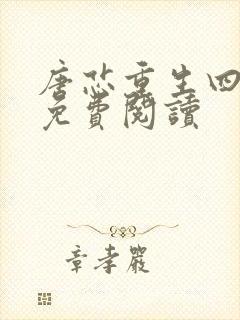 唐芯重生四
免費閱讀
章孝嚴